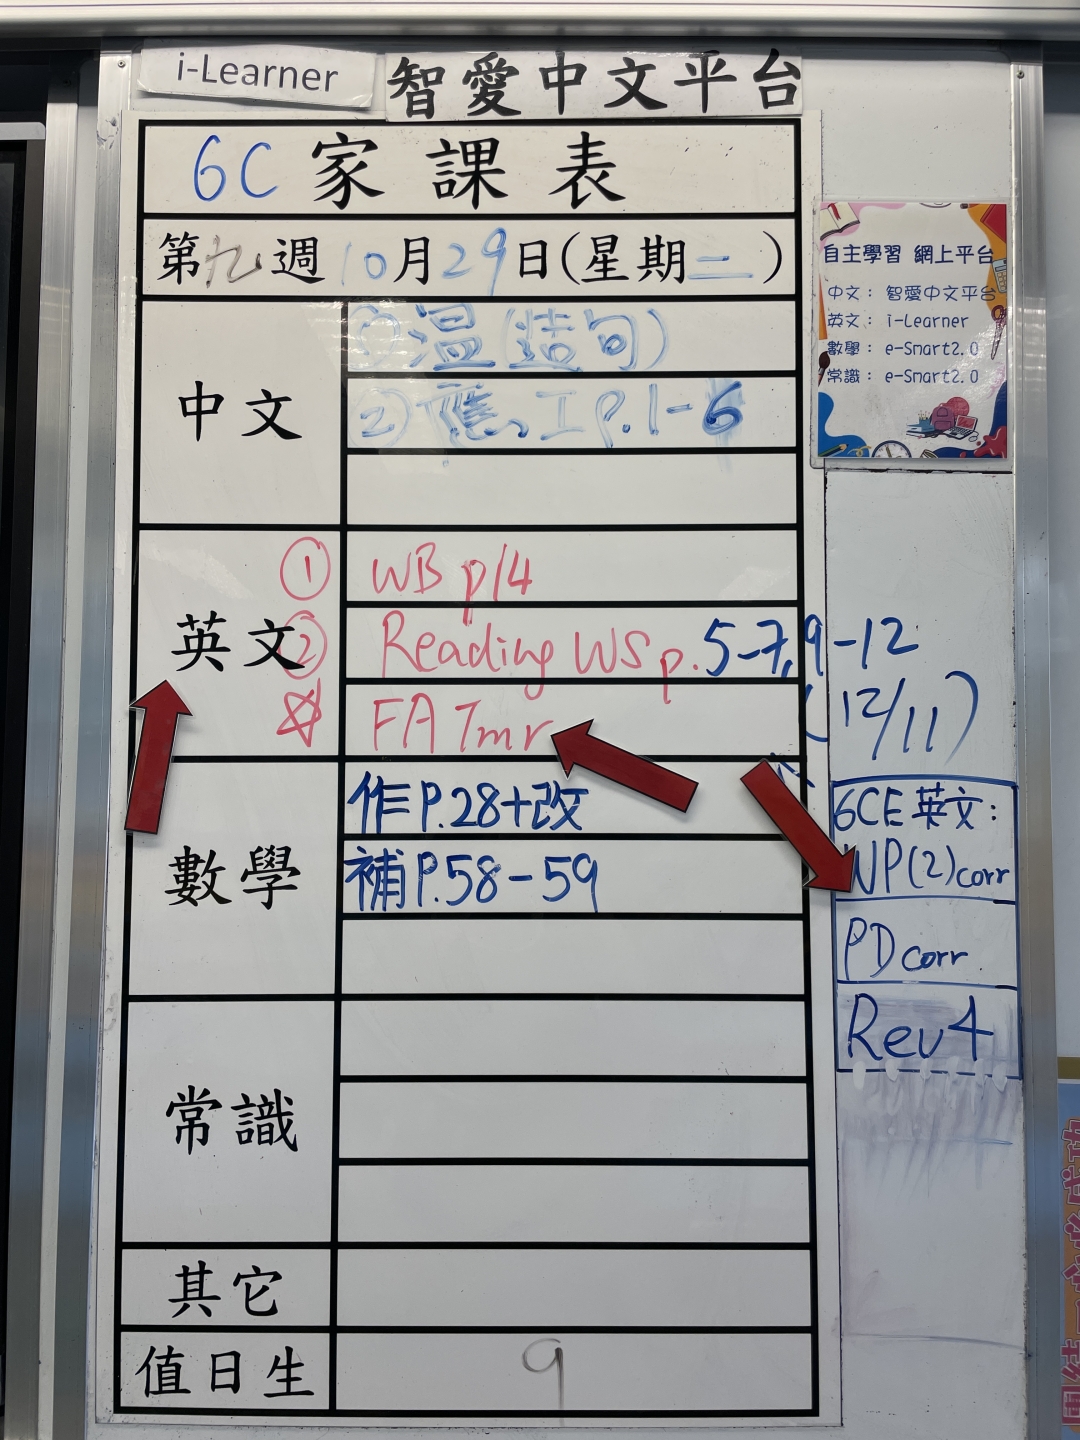 i-Learner
智愛中文平台
6C 家課表
第九週 10月29日(星期二)
中文
① 温(造句)
② 應、工 P.1-6
英文
① WB p14
② Reading WS p. 5-7, 9-12
(12/11)
☆ FA Tmr
數學
作P.28+改
補P.58-59
常識
其它
值日生
9
自主學習 網上平台
中文： 智愛中文平台
英文： i-Learner
數學： e-Smart2.0
常識： e-Smart2.0
6CE 英文：
WP(2)corr
PD corr
Rev 4